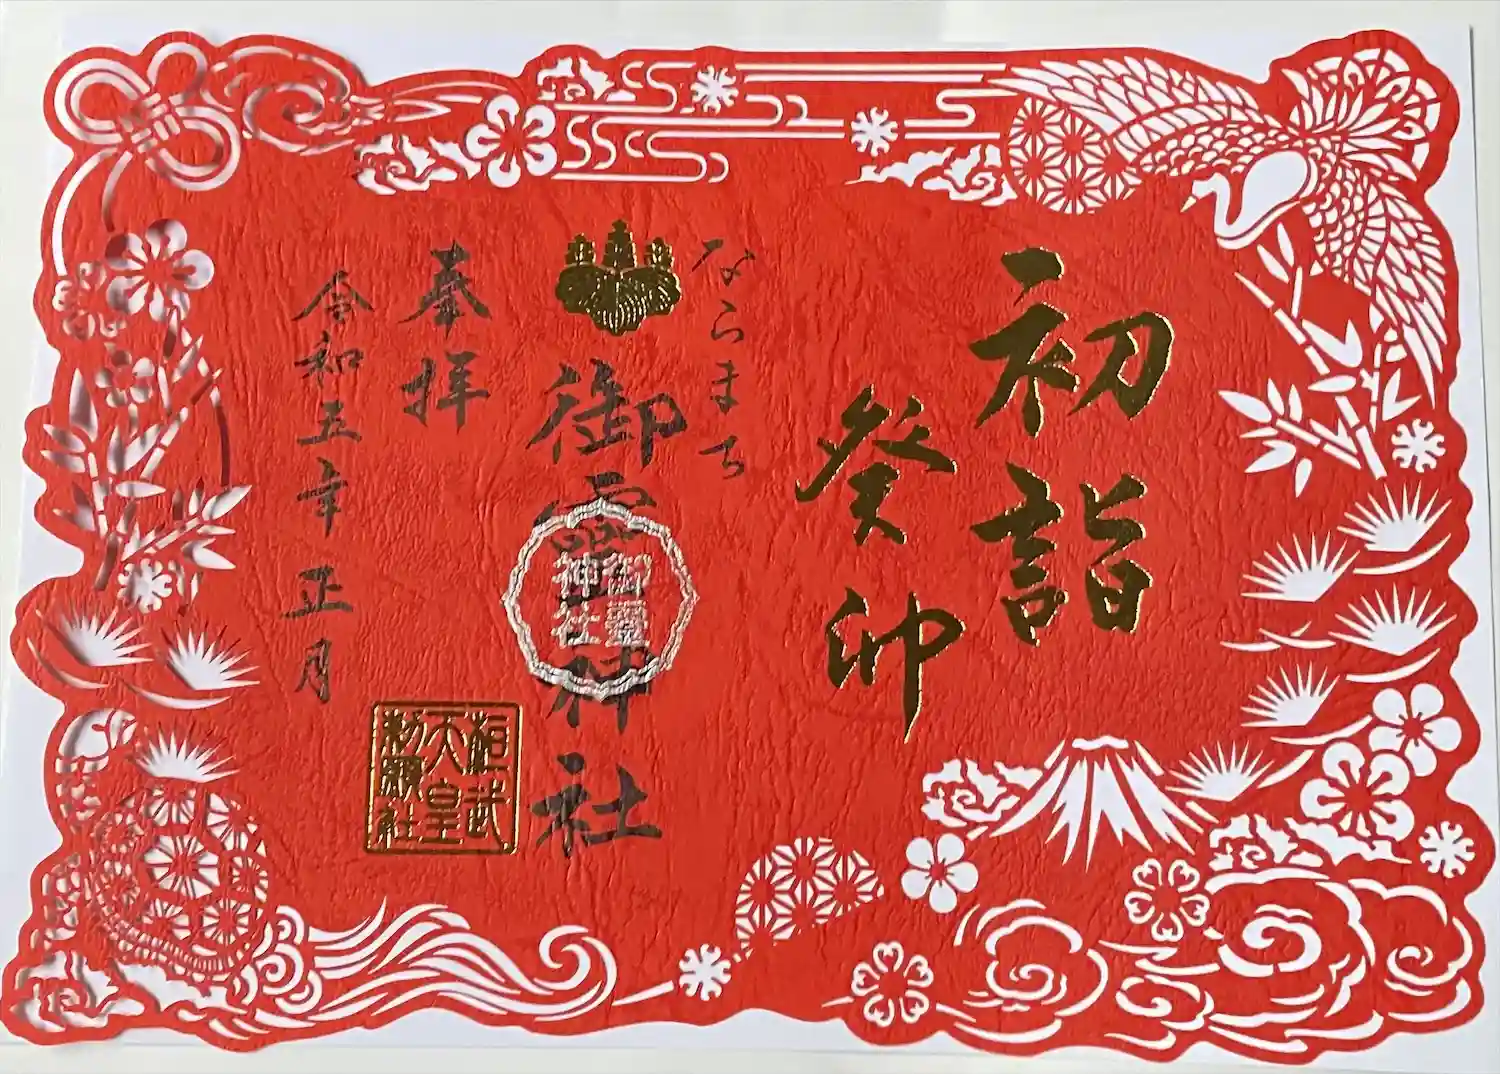 初詣
癸卯
ならまち
御霊神社
御霊
神社
奉拝
桓武
天皇
勅願社
令和五年 正月